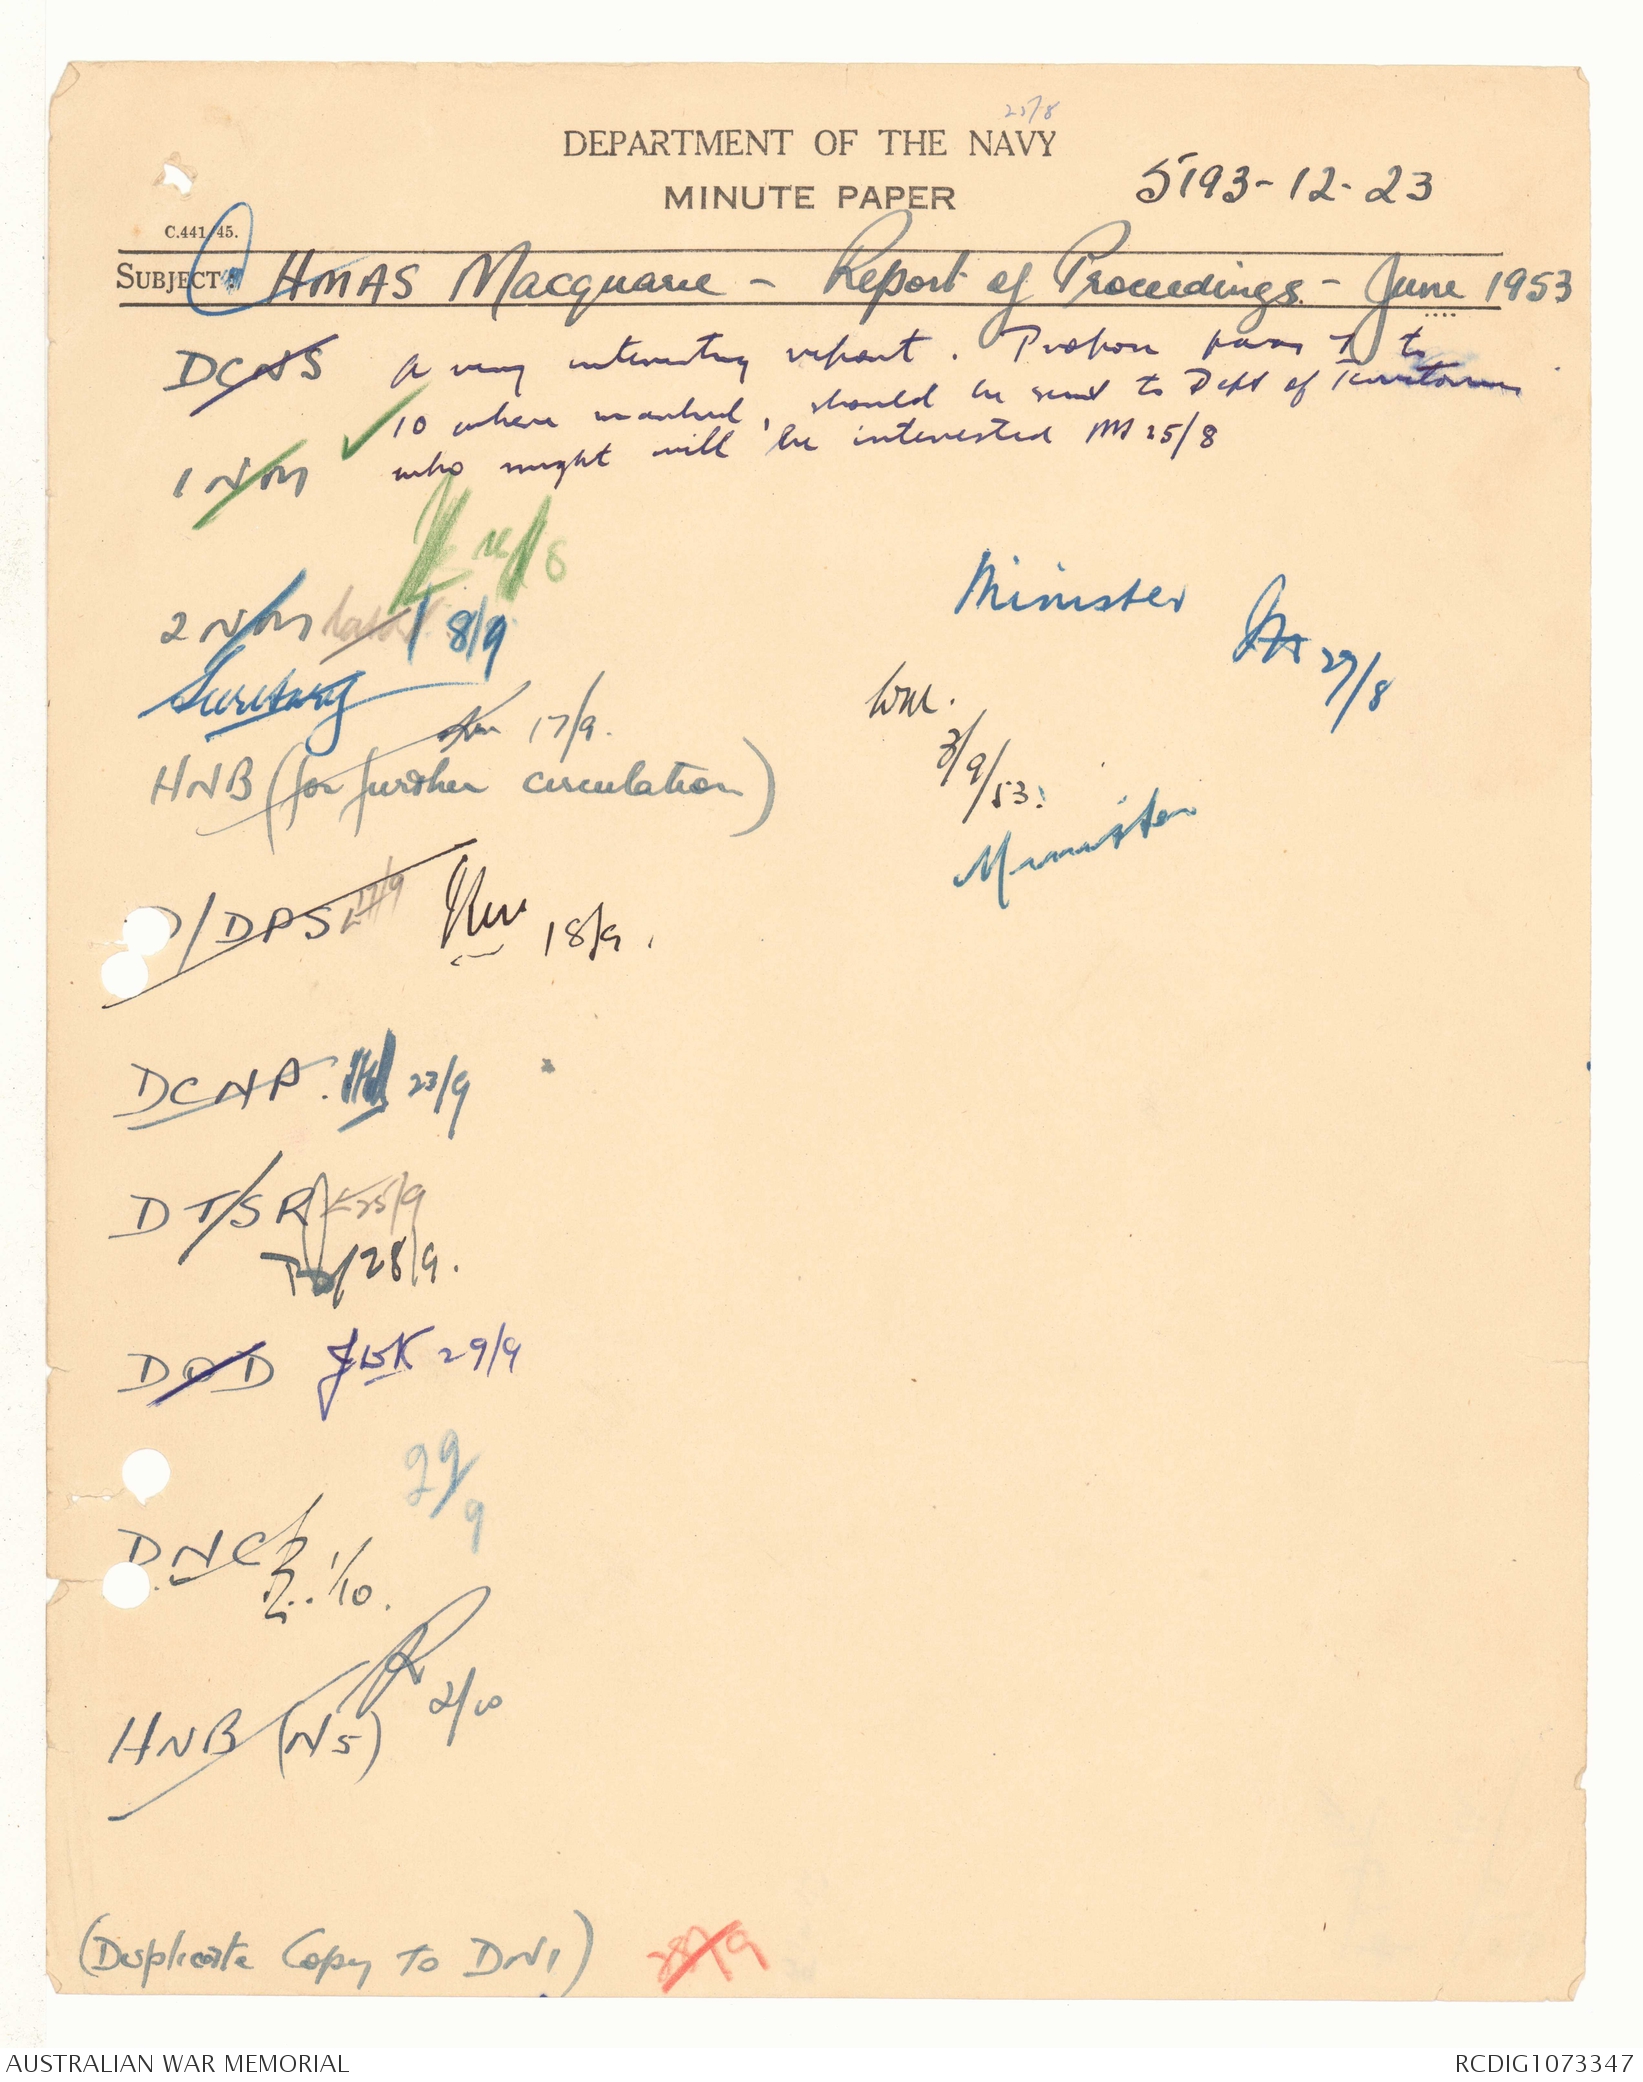 25/8
DEPARTMENT OF THE NAVY
MINUTE PAPER
5193-12-23
C.441/45.
SUBJECT HMAS Macquarie - Report of Proceedings - June 1953
DCNS
A very interesting report. Propose paras 7 to
10 where marked, should be sent to Dept of Territories
who might well be interested 25/8
1 NM
/8
2 NM 8/9
Minister
27/8
Secretary
17/9.
3/9/53.
HNB (for further circulation)
Minister
D/DPS 17/9 18/9.
DCNP. 23/9
DTSR 25/9
28/9.
DOD 29/9
29/9
DNC
1/10.
2/10
HNB (N5)
(Duplicate Copy to DNI) 28/9
AUSTRALIAN WAR MEMORIAL
RCDIG1073347